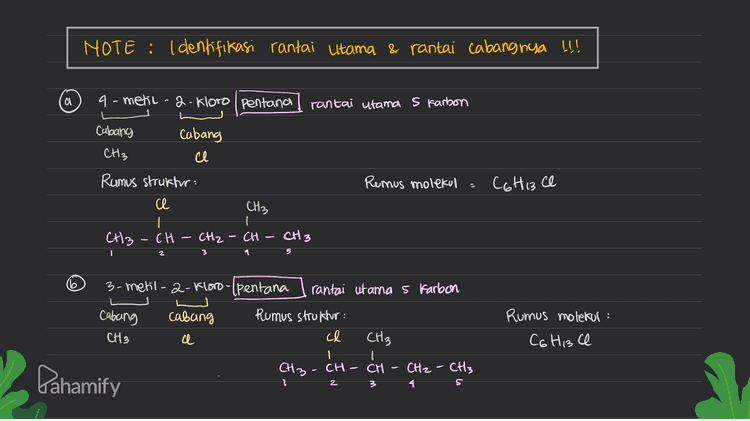 NOTE : Identifikasi rantai utama & rantai cabangnya !!!
a 4 - metil - 2 - kloro pentana rantai utama 5 karbon
Cabang Cabang
CH3 Cl
Rumus struktur : Rumus molekul = C6H13 Cl
Cl CH3
CH3 - CH - CH2 - CH - CH3
1 2 3 4 5
b 3 - metil - 2 - kloro - pentana rantai utama 5 karbon
Cabang cabang Rumus struktur : Rumus molekul :
CH3 Cl Cl CH3 C6 H13 Cl
CH3 - CH - CH - CH2 - CH3
1 2 3 4 5
Pahamify